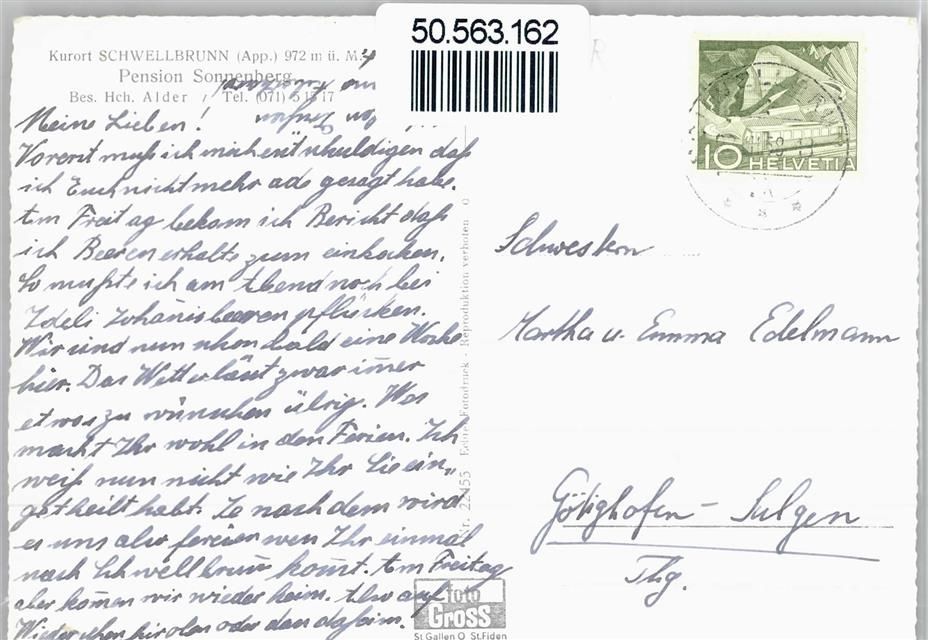 50.563.162
Kurort SCHWELLBRUNN (App.) 972 m ü. M.
Pension Sonnenberg
Bes. Hch. Alder / Tel. (071) 5 15 17
Meine Lieben!
Vorerst muß ich mich entschuldigen daß
ich Euch nicht mehr ade gesagt habe.
Am Freitag bekam ich Bericht daß
ich Beeren erhalte zum einkochen.
So mußte ich am Abend noch bei
Ideli Johanisbeeren pflücken.
Wir sind nun schon bald eine Woche
hier. Das Wetter läst zwar imer
etwas zu wünschen übrig. Was
macht Ihr wohl in den Ferien. Ich
weiß nun nicht wie Ihr Sie ein„
getheilt habt. Je nach dem wird
es uns also freien wen Ihr einmal
nach Schwellbrun komt. Am Freitag
aber komen wir wieder heim. Also auf
Wiedersehen hir oben oder dan daheim.
Nr. 22455 Echte Fotodruck - Reproduktion verboten
foto
Gross
St Gallen O St. Fiden
10 HELVETIA
Schwestern
Martha u. Emma Edelmann
Götighofen - Sulgen
Thg.